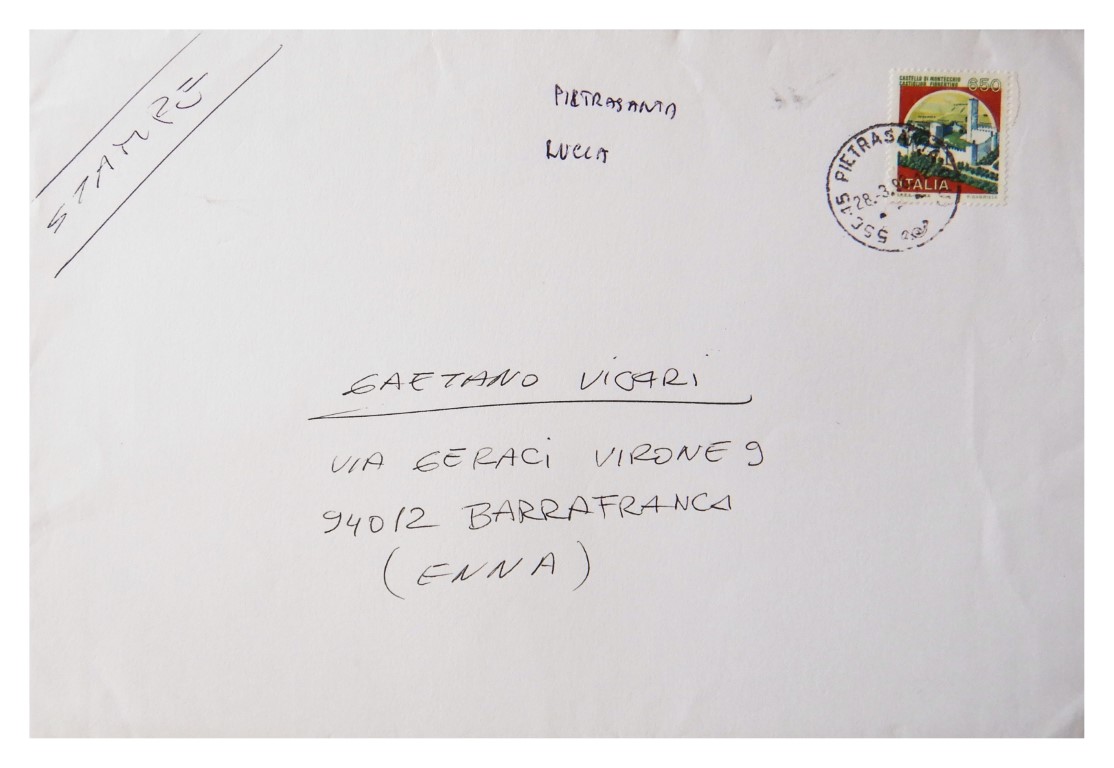 STAMPE
PIETRASANTA
LUCCA
CASTELLO DI MONTECCHIO
CASTIGLION FIORENTINO
650
ITALIA
PIETRASANTA
28.-3.
GAETANO VICARI
VIA GERACI VIRONE 9
94012 BARRAFRANCA
(ENNA)